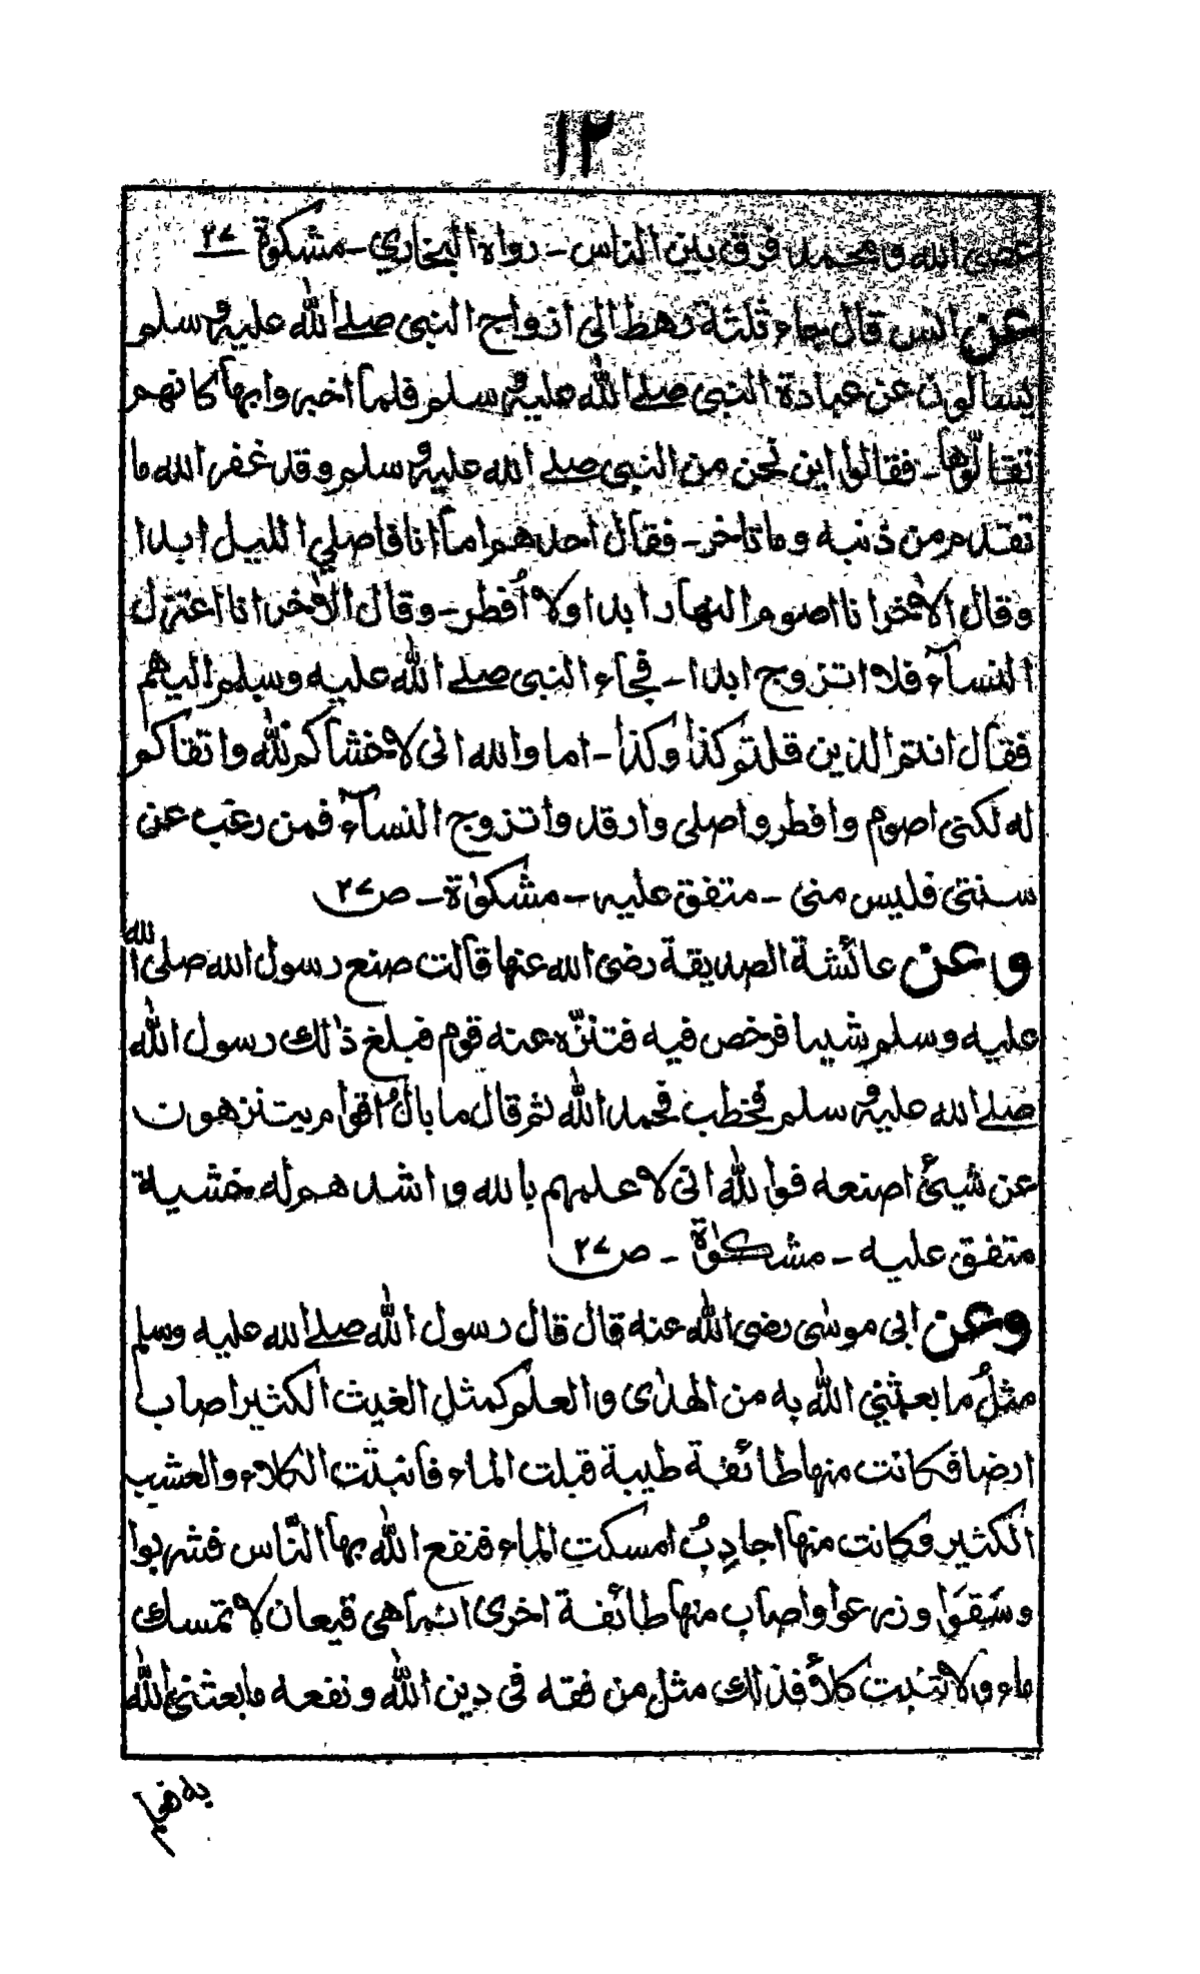 ١٢
عصى الله ومحمد فرق بين الناس - رواه البخاري - مشكوٰة ٢٧
عن انس قال جاء ثلثة رهط الى ازواج النبى صلے الله عليه وسلم
يسالون عن عبادة النبى صلے الله عليه وسلم فلما اخبروا بها كانهم
تقالّوها - فقالوا اين نحن من النبى صلے الله عليه وسلم وقد غفر الله ما
تقدم من ذنبه وما تاخر - فقال احدهم اما انا فاصلي الليل ابدا
وقال الاٰخر انا اصوم النهار ابدا ولا اُفطر - وقال الاٰخر انا اعتزل
النسآء فلا اتزوج ابدا - فجاء النبى صلے الله عليه وسلم اليهم
فقال انتم الذين قلتم كذا وكذا - اما والله انى لاخشاكم لله واتقاكم
له لكنى اصوم وافطر واصلى وارقد واتزوج النسآء فمن رغب عن
سنتى فليس منى - متفق عليه - مشكوٰة - ص ٢٧
وعن عائشة الصديقة رضى الله عنها قالت صنع رسول الله صلى الله
عليه وسلم شيبا فرخص فيه فتنزّه عنه قوم فبلغ ذٰلك رسول الله
صلے الله عليه وسلم فخطب فحمد الله ثم قال ما بال اقوام يتنزهون
عن شيئ اصنعه فوالله انى لاعلمهم بالله واشدهم له خشية
متفق عليه - مشكوٰة - ص ٢٧
وعن ابى موسٰى رضى الله عنه قال قال رسول الله صلے الله عليه وسلم
مثلُ ما بعثني الله به من الهدٰى والعلم كمثل الغيث الكثير اصاب
ارضا فكانت منها طائفة طيبة قبلت الماء فانبتت الكلاء والعشب
الكثير وكانت منها اجادِبُ امسكت الماء فنفع الله بها النّاس فشربوا
وسَقَوا وزرعوا واصاب منها طائفة اخرى انما هى قيعان لا تمسك
ماء ولا تنبت كلأ فذالك مثل من فقه فى دين الله ونفعه ما بعثنى الله
به فعلم